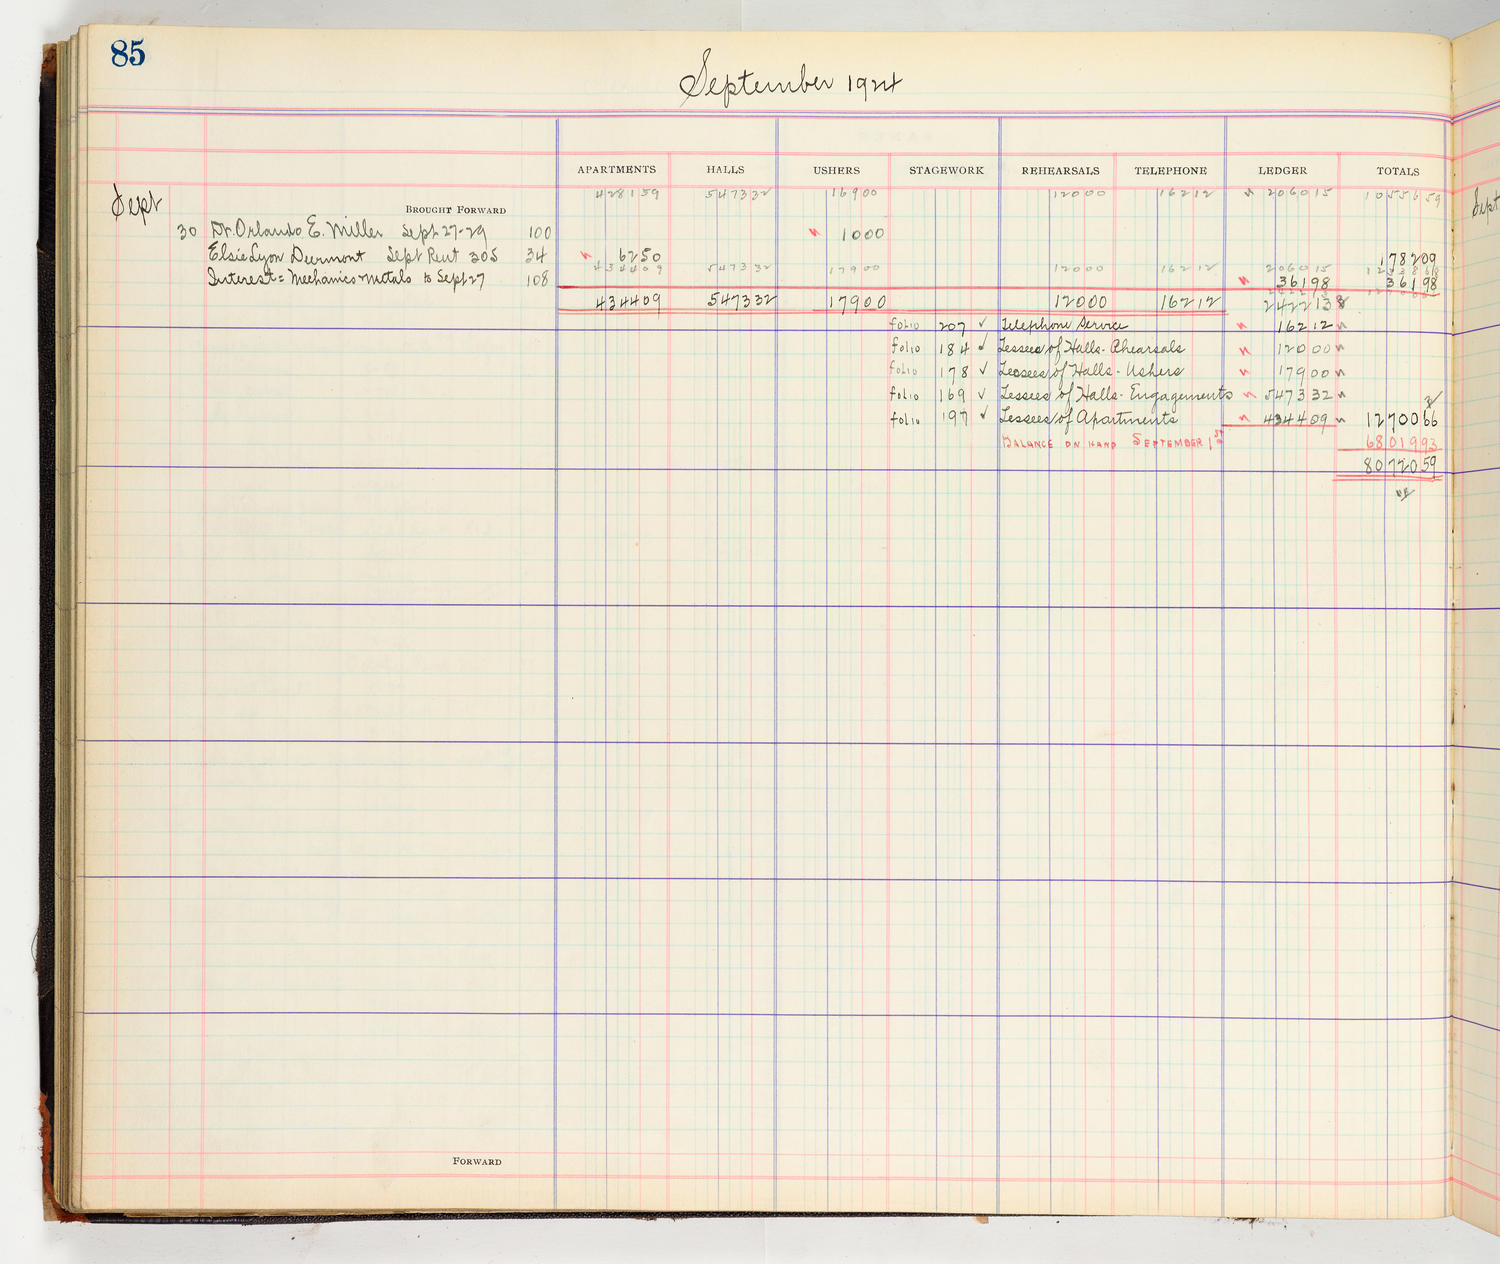 85
September 1924
APARTMENTS HALLS USHERS STAGEWORK REHEARSALS TELEPHONE LEDGER TOTALS
Sept BROUGHT FORWARD 428159 547332 16900 12000 16212 206015 1055659
30 Dr. Orlando E. Miller Sept 27-29 100 1000
Elsie Lyon Durmont Sept Rent 305 34 6250 178209
434409 547332 17900 12000 16212 206015
Interest = Mechanics & Metals to Sept 27 108 36198 36198
434409 547332 17900 12000 16212 242213
folio 207 ✓ Telephone Service 16212
folio 184 ✓ Lessees of Halls - Rhearsals 12000
folio 178 ✓ Lessees of Halls - Ushers 17900
folio 169 ✓ Lessees of Halls - Engagements 547332
folio 197 ✓ Lessees of Apartments 434409 1270066
BALANCE ON HAND SEPTEMBER 1st 6801993
8072059
FORWARD
Sept